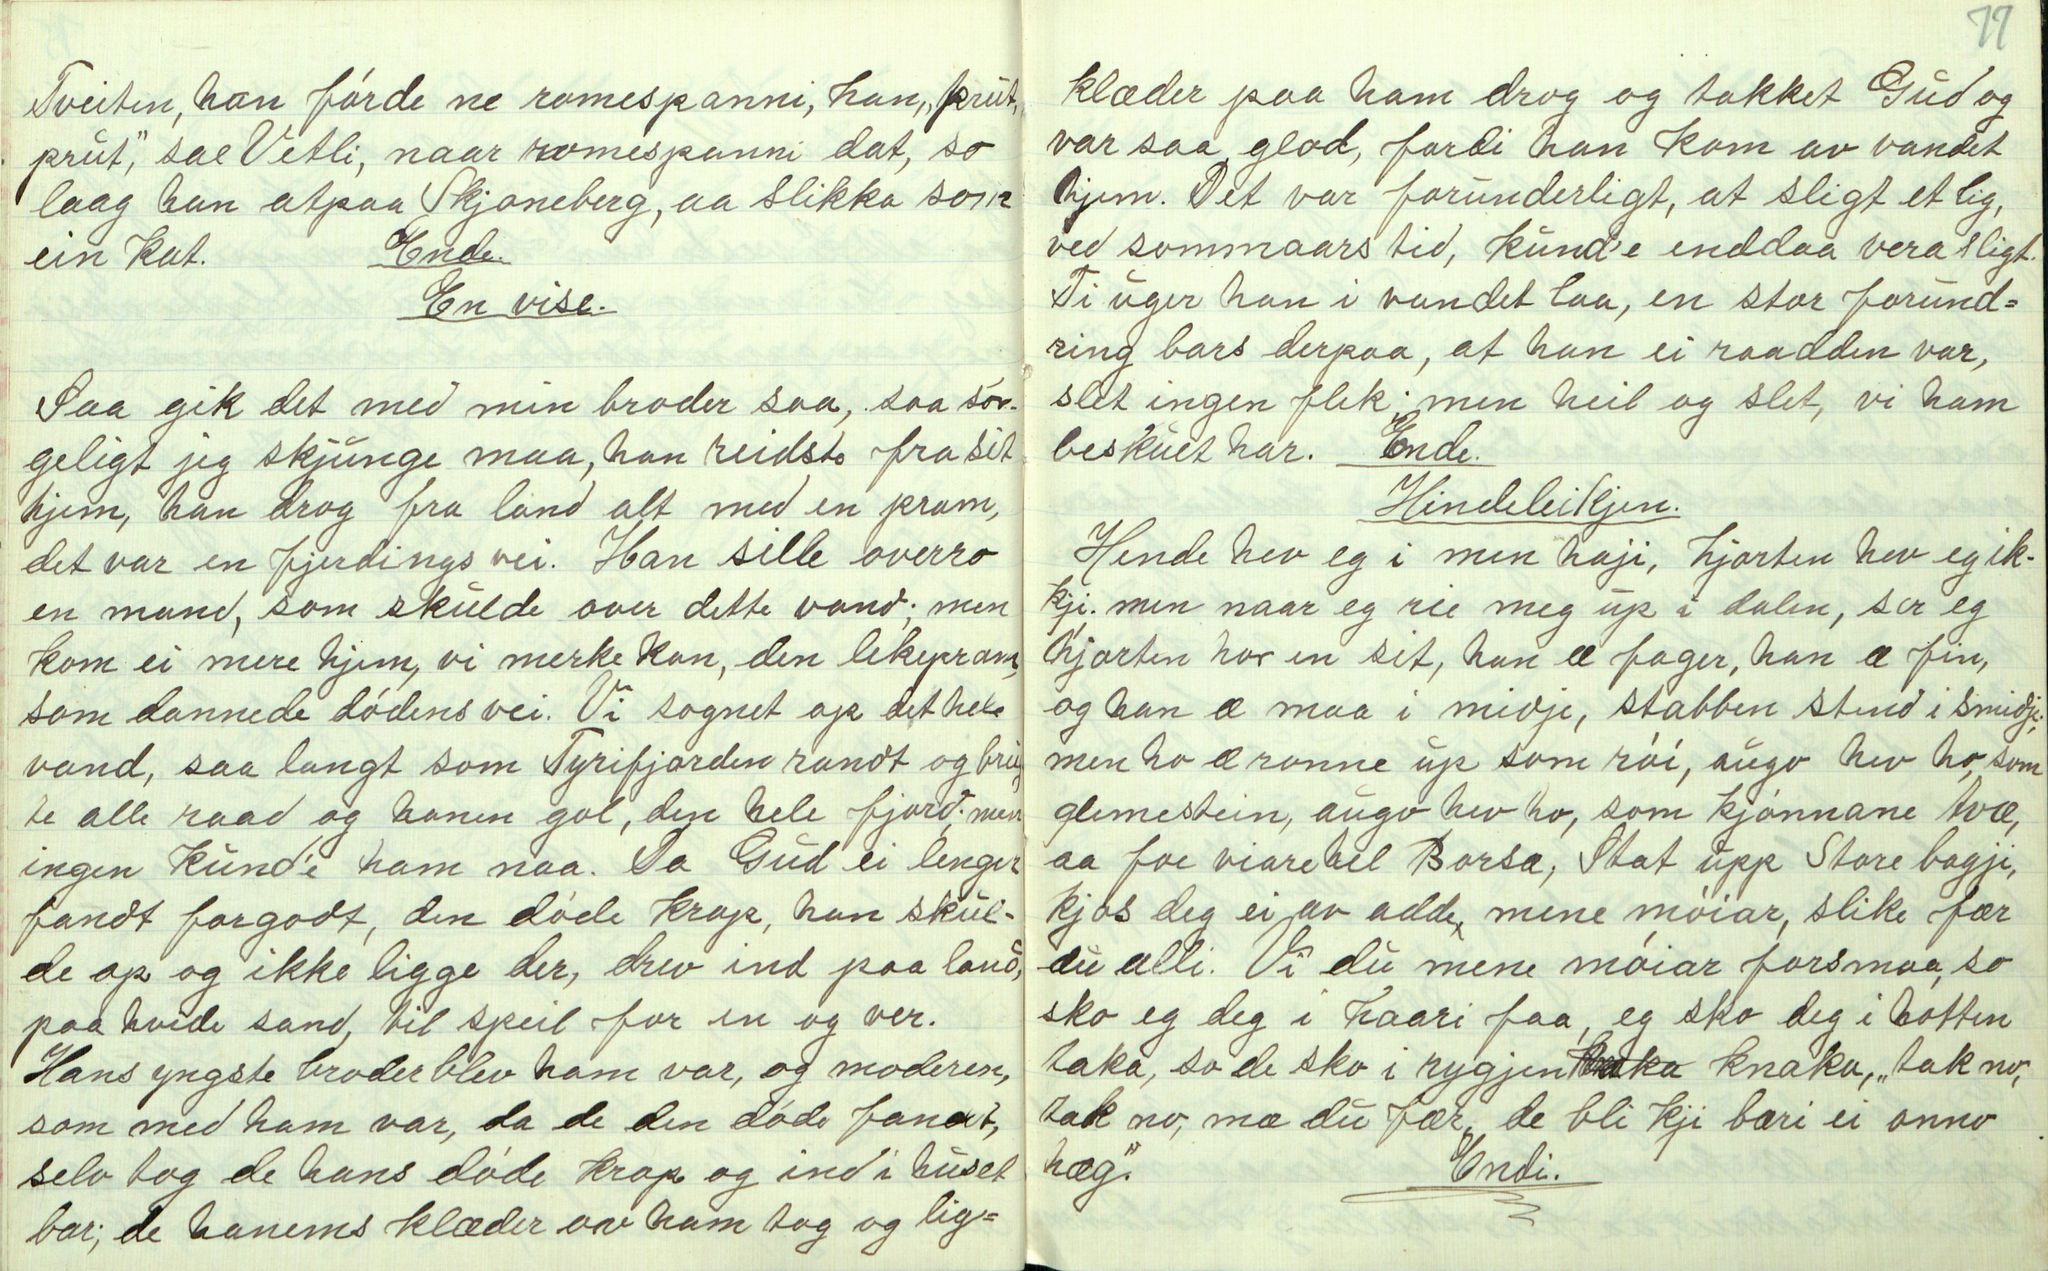 Tveiten, han förde ne romespanni, han, „prut,
prut," sae Vetli, naar romespanni dat, so
laag han atpaa Skjaneberg, aa slikka som
ein kat. Ende.
En vise.
Saa gik det med min broder saa, saa sör-
geligt jeg skjunge maa, han reidste fra sit
hjem, han drog fra land alt med en pram,
det var en fjerdings vei. Han sille overro
en mand, som skulde over dette vand; men
kom ei mere hjem, vi merke kan, den likepram,
som dannede dödens vei. Vi sognet op det hele
vand, saa langt som Tyrifjorden randt og brug
te alle raad og hanen gol, den hele fjord; men
ingen kunde ham naa. Da Gud ei lenger
fandt forgodt, den döde krop, han skul-
de op og ikke ligge der, drev ind paa land,
paa hvide sand, til speil for en og ver.
Hans yngste broder blev ham var, og moderen,
som med ham var, da de den döde fandt,
selv tog de hans döde krop og ind i huset
bar; de hanems klæder av ham tog og lig=
77
klæder paa ham drog og takket Gud og
var saa glad, fordi han kom av vandet
hjem. Det var forunderligt, at sligt et lig,
ved sommaars tid, kunde enddaa vera sligt.
Ti uger han i vandet laa, en stor forund=
ring bars derpaa, at han ei raadden var,
slet ingen flek; men heil og slet, vi ham
beskuet har. Ende.
Hindeleikjen.
Hende hev eg i men haji, hjorten hev eg ik-
kji. men naar eg rie meg up i dalen, ser eg
hjorten hor en sit, han æ fager, han æ fin,
og han æ maa i midje, stabben stend i smidje;
men ho æ ronne up som röi, augo hev ho, som
glemestein, augo hev ho, som kjönnane tvæ,
aa foe viare hel Borsæ, Stat upp Store bagji,
kjos deg ei av adde, mene möiar, slike fær
du alli. Vi du mene möiar forsmaa, so
sko eg deg i haari faa, eg sko deg i hotten
taka, so de sko i rygjen knaka, „tak no,
tak no, mæ du fær, de bli kji bæri ei anno
hæg".
Endi.